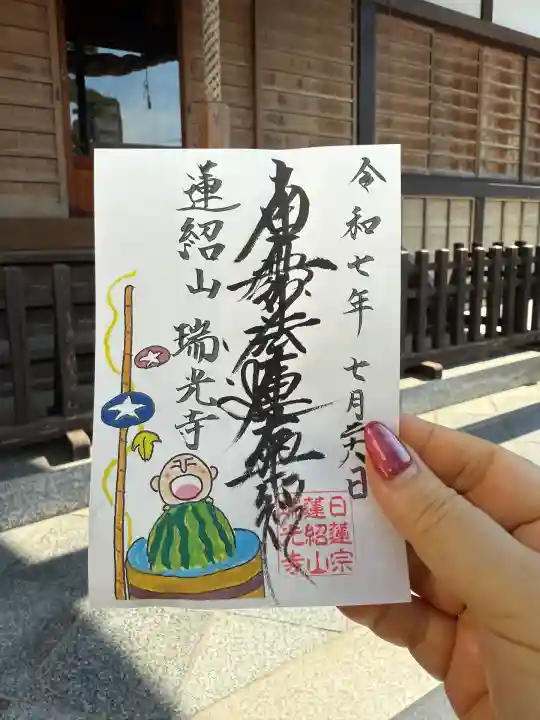 令和七年 七月二十六日
南無妙法蓮華経
蓮紹山 瑞光寺
日蓮宗
蓮紹山
瑞光寺